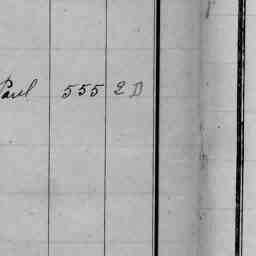 Paul 555 2 D